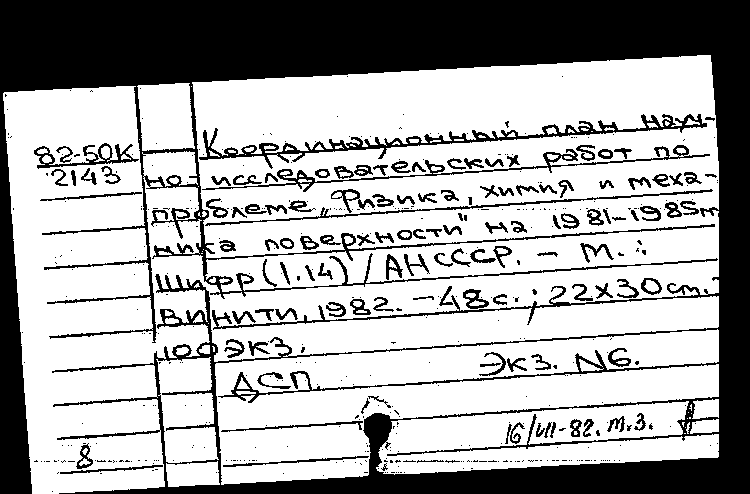 82-50К
2143
Координационный план науч-
но-исследовательских работ по
проблеме „Физика, химия и меха-
ника поверхности" на 1981-1985гг
Шифр (1.14) / АН СССР. – М. :
ВИНИТИ, 1982. – 48 с. ; 22х30 см. -
100 экз.
ДСП. Экз. N6.
16/VII-82. т.з.
8